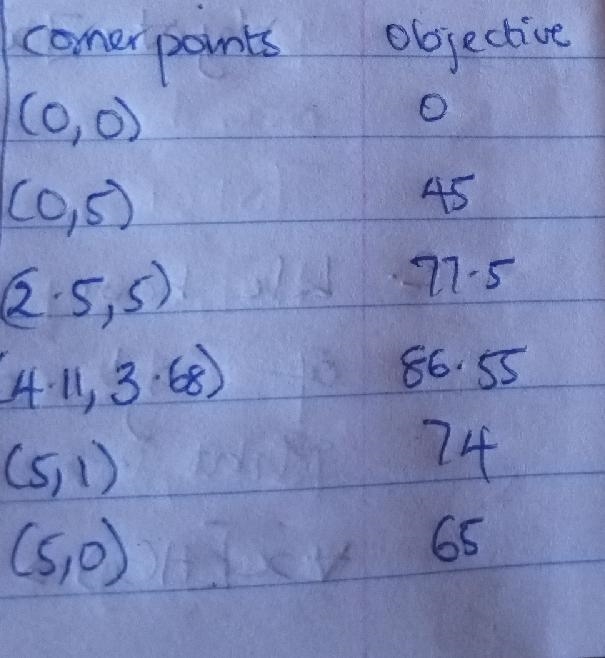 Corner points Objective
(0,0) 0
(0,5) 45
(2.5,5) 77.5
(4.11, 3.68) 86.55
(5,1) 74
(5,0) 65